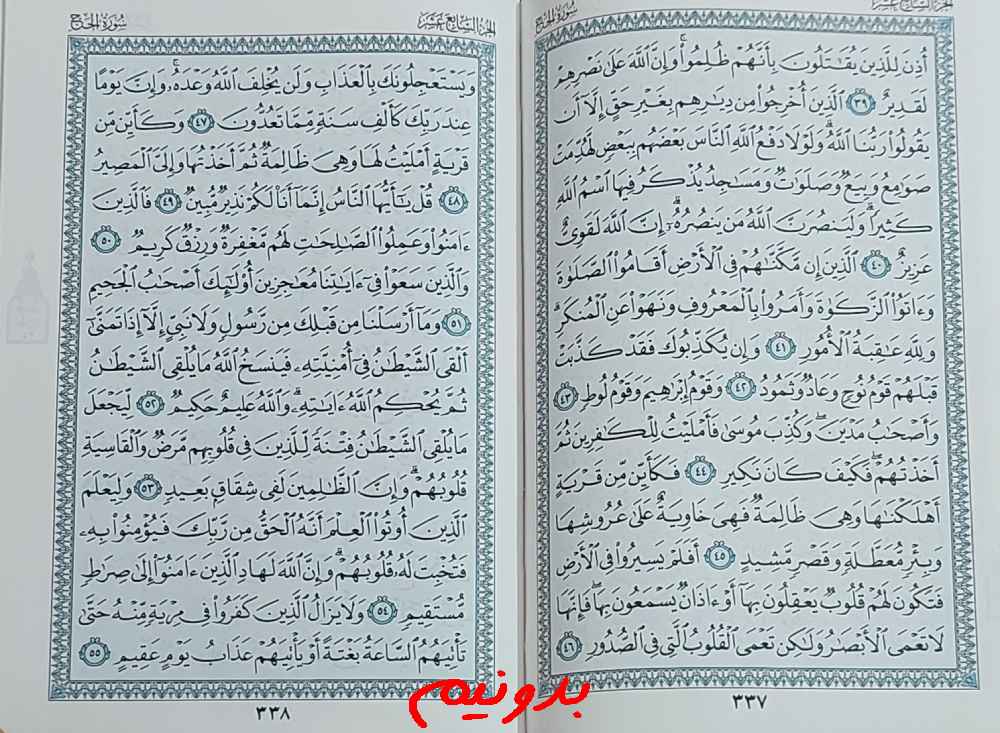 الجزء السابع عشر
سورة الحج
أُذِنَ لِلَّذِينَ يُقَٰتَلُونَ بِأَنَّهُمْ ظُلِمُوا۟ وَإِنَّ ٱللَّهَ عَلَىٰ نَصْرِهِمْ
لَقَدِيرٌ ٣٩ ٱلَّذِينَ أُخْرِجُوا۟ مِن دِيَٰرِهِم بِغَيْرِ حَقٍّ إِلَّآ أَن
يَقُولُوا۟ رَبُّنَا ٱللَّهُ وَلَوْلَا دَفْعُ ٱللَّهِ ٱلنَّاسَ بَعْضَهُم بِبَعْضٍ لَّهُدِّمَتْ
صَوَٰمِعُ وَبِيَعٌ وَصَلَوَٰتٌ وَمَسَٰجِدُ يُذْكَرُ فِيهَا ٱسْمُ ٱللَّهِ
كَثِيرًا وَلَيَنصُرَنَّ ٱللَّهُ مَن يَنصُرُهُۥٓ إِنَّ ٱللَّهَ لَقَوِىٌّ
عَزِيزٌ ٤٠ ٱلَّذِينَ إِن مَّكَّنَّٰهُمْ فِى ٱلْأَرْضِ أَقَامُوا۟ ٱلصَّلَوٰةَ
وَءَاتَوُا۟ ٱلزَّكَوٰةَ وَأَمَرُوا۟ بِٱلْمَعْرُوفِ وَنَهَوْا۟ عَنِ ٱلْمُنكَرِ
وَلِلَّهِ عَٰقِبَةُ ٱلْأُمُورِ ٤١ وَإِن يُكَذِّبُوكَ فَقَدْ كَذَّبَتْ
قَبْلَهُمْ قَوْمُ نُوحٍ وَعَادٌ وَثَمُودُ ٤٢ وَقَوْمُ إِبْرَٰهِيمَ وَقَوْمُ لُوطٍ ٤٣
وَأَصْحَٰبُ مَدْيَنَ وَكُذِّبَ مُوسَىٰ فَأَمْلَيْتُ لِلْكَٰفِرِينَ ثُمَّ
أَخَذْتُهُمْ فَكَيْفَ كَانَ نَكِيرِ ٤٤ فَكَأَيِّن مِّن قَرْيَةٍ
أَهْلَكْنَٰهَا وَهِىَ ظَالِمَةٌ فَهِىَ خَاوِيَةٌ عَلَىٰ عُرُوشِهَا
وَبِئْرٍ مُّعَطَّلَةٍ وَقَصْرٍ مَّشِيدٍ ٤٥ أَفَلَمْ يَسِيرُوا۟ فِى ٱلْأَرْضِ
فَتَكُونَ لَهُمْ قُلُوبٌ يَعْقِلُونَ بِهَآ أَوْ ءَاذَانٌ يَسْمَعُونَ بِهَا فَإِنَّهَا
لَا تَعْمَى ٱلْأَبْصَٰرُ وَلَٰكِن تَعْمَى ٱلْقُلُوبُ ٱلَّتِى فِى ٱلصُّدُورِ ٤٦
٣٣٧
الجزء السابع عشر
سورة الحج
وَيَسْتَعْجِلُونَكَ بِٱلْعَذَابِ وَلَن يُخْلِفَ ٱللَّهُ وَعْدَهُۥ وَإِنَّ يَوْمًا
عِندَ رَبِّكَ كَأَلْفِ سَنَةٍ مِّمَّا تَعُدُّونَ ٤٧ وَكَأَيِّن مِّن
قَرْيَةٍ أَمْلَيْتُ لَهَا وَهِىَ ظَالِمَةٌ ثُمَّ أَخَذْتُهَا وَإِلَىَّ ٱلْمَصِيرُ
٤٨ قُلْ يَٰٓأَيُّهَا ٱلنَّاسُ إِنَّمَآ أَنَا۠ لَكُمْ نَذِيرٌ مُّبِينٌ ٤٩ فَٱلَّذِينَ
ءَامَنُوا۟ وَعَمِلُوا۟ ٱلصَّٰلِحَٰتِ لَهُم مَّغْفِرَةٌ وَرِزْقٌ كَرِيمٌ ٥٠
وَٱلَّذِينَ سَعَوْا۟ فِىٓ ءَايَٰتِنَا مُعَٰجِزِينَ أُو۟لَٰٓئِكَ أَصْحَٰبُ ٱلْجَحِيمِ
٥١ وَمَآ أَرْسَلْنَا مِن قَبْلِكَ مِن رَّسُولٍ وَلَا نَبِىٍّ إِلَّآ إِذَا تَمَنَّىٰٓ
أَلْقَى ٱلشَّيْطَٰنُ فِىٓ أُمْنِيَّتِهِۦ فَيَنسَخُ ٱللَّهُ مَا يُلْقِى ٱلشَّيْطَٰنُ
ثُمَّ يُحْكِمُ ٱللَّهُ ءَايَٰتِهِۦ وَٱللَّهُ عَلِيمٌ حَكِيمٌ ٥٢ لِّيَجْعَلَ
مَا يُلْقِى ٱلشَّيْطَٰنُ فِتْنَةً لِّلَّذِينَ فِى قُلُوبِهِم مَّرَضٌ وَٱلْقَاسِيَةِ
قُلُوبُهُمْ وَإِنَّ ٱلظَّٰلِمِينَ لَفِى شِقَاقٍۭ بَعِيدٍ ٥٣ وَلِيَعْلَمَ
ٱلَّذِينَ أُوتُوا۟ ٱلْعِلْمَ أَنَّهُ ٱلْحَقُّ مِن رَّبِّكَ فَيُؤْمِنُوا۟ بِهِۦ
فَتُخْبِتَ لَهُۥ قُلُوبُهُمْ وَإِنَّ ٱللَّهَ لَهَادِ ٱلَّذِينَ ءَامَنُوٓا۟ إِلَىٰ صِرَٰطٍ
مُّسْتَقِيمٍ ٥٤ وَلَا يَزَالُ ٱلَّذِينَ كَفَرُوا۟ فِى مِرْيَةٍ مِّنْهُ حَتَّىٰ
تَأْتِيَهُمُ ٱلسَّاعَةُ بَغْتَةً أَوْ يَأْتِيَهُمْ عَذَابُ يَوْمٍ عَقِيمٍ ٥٥
٣٣٨
بدونیم